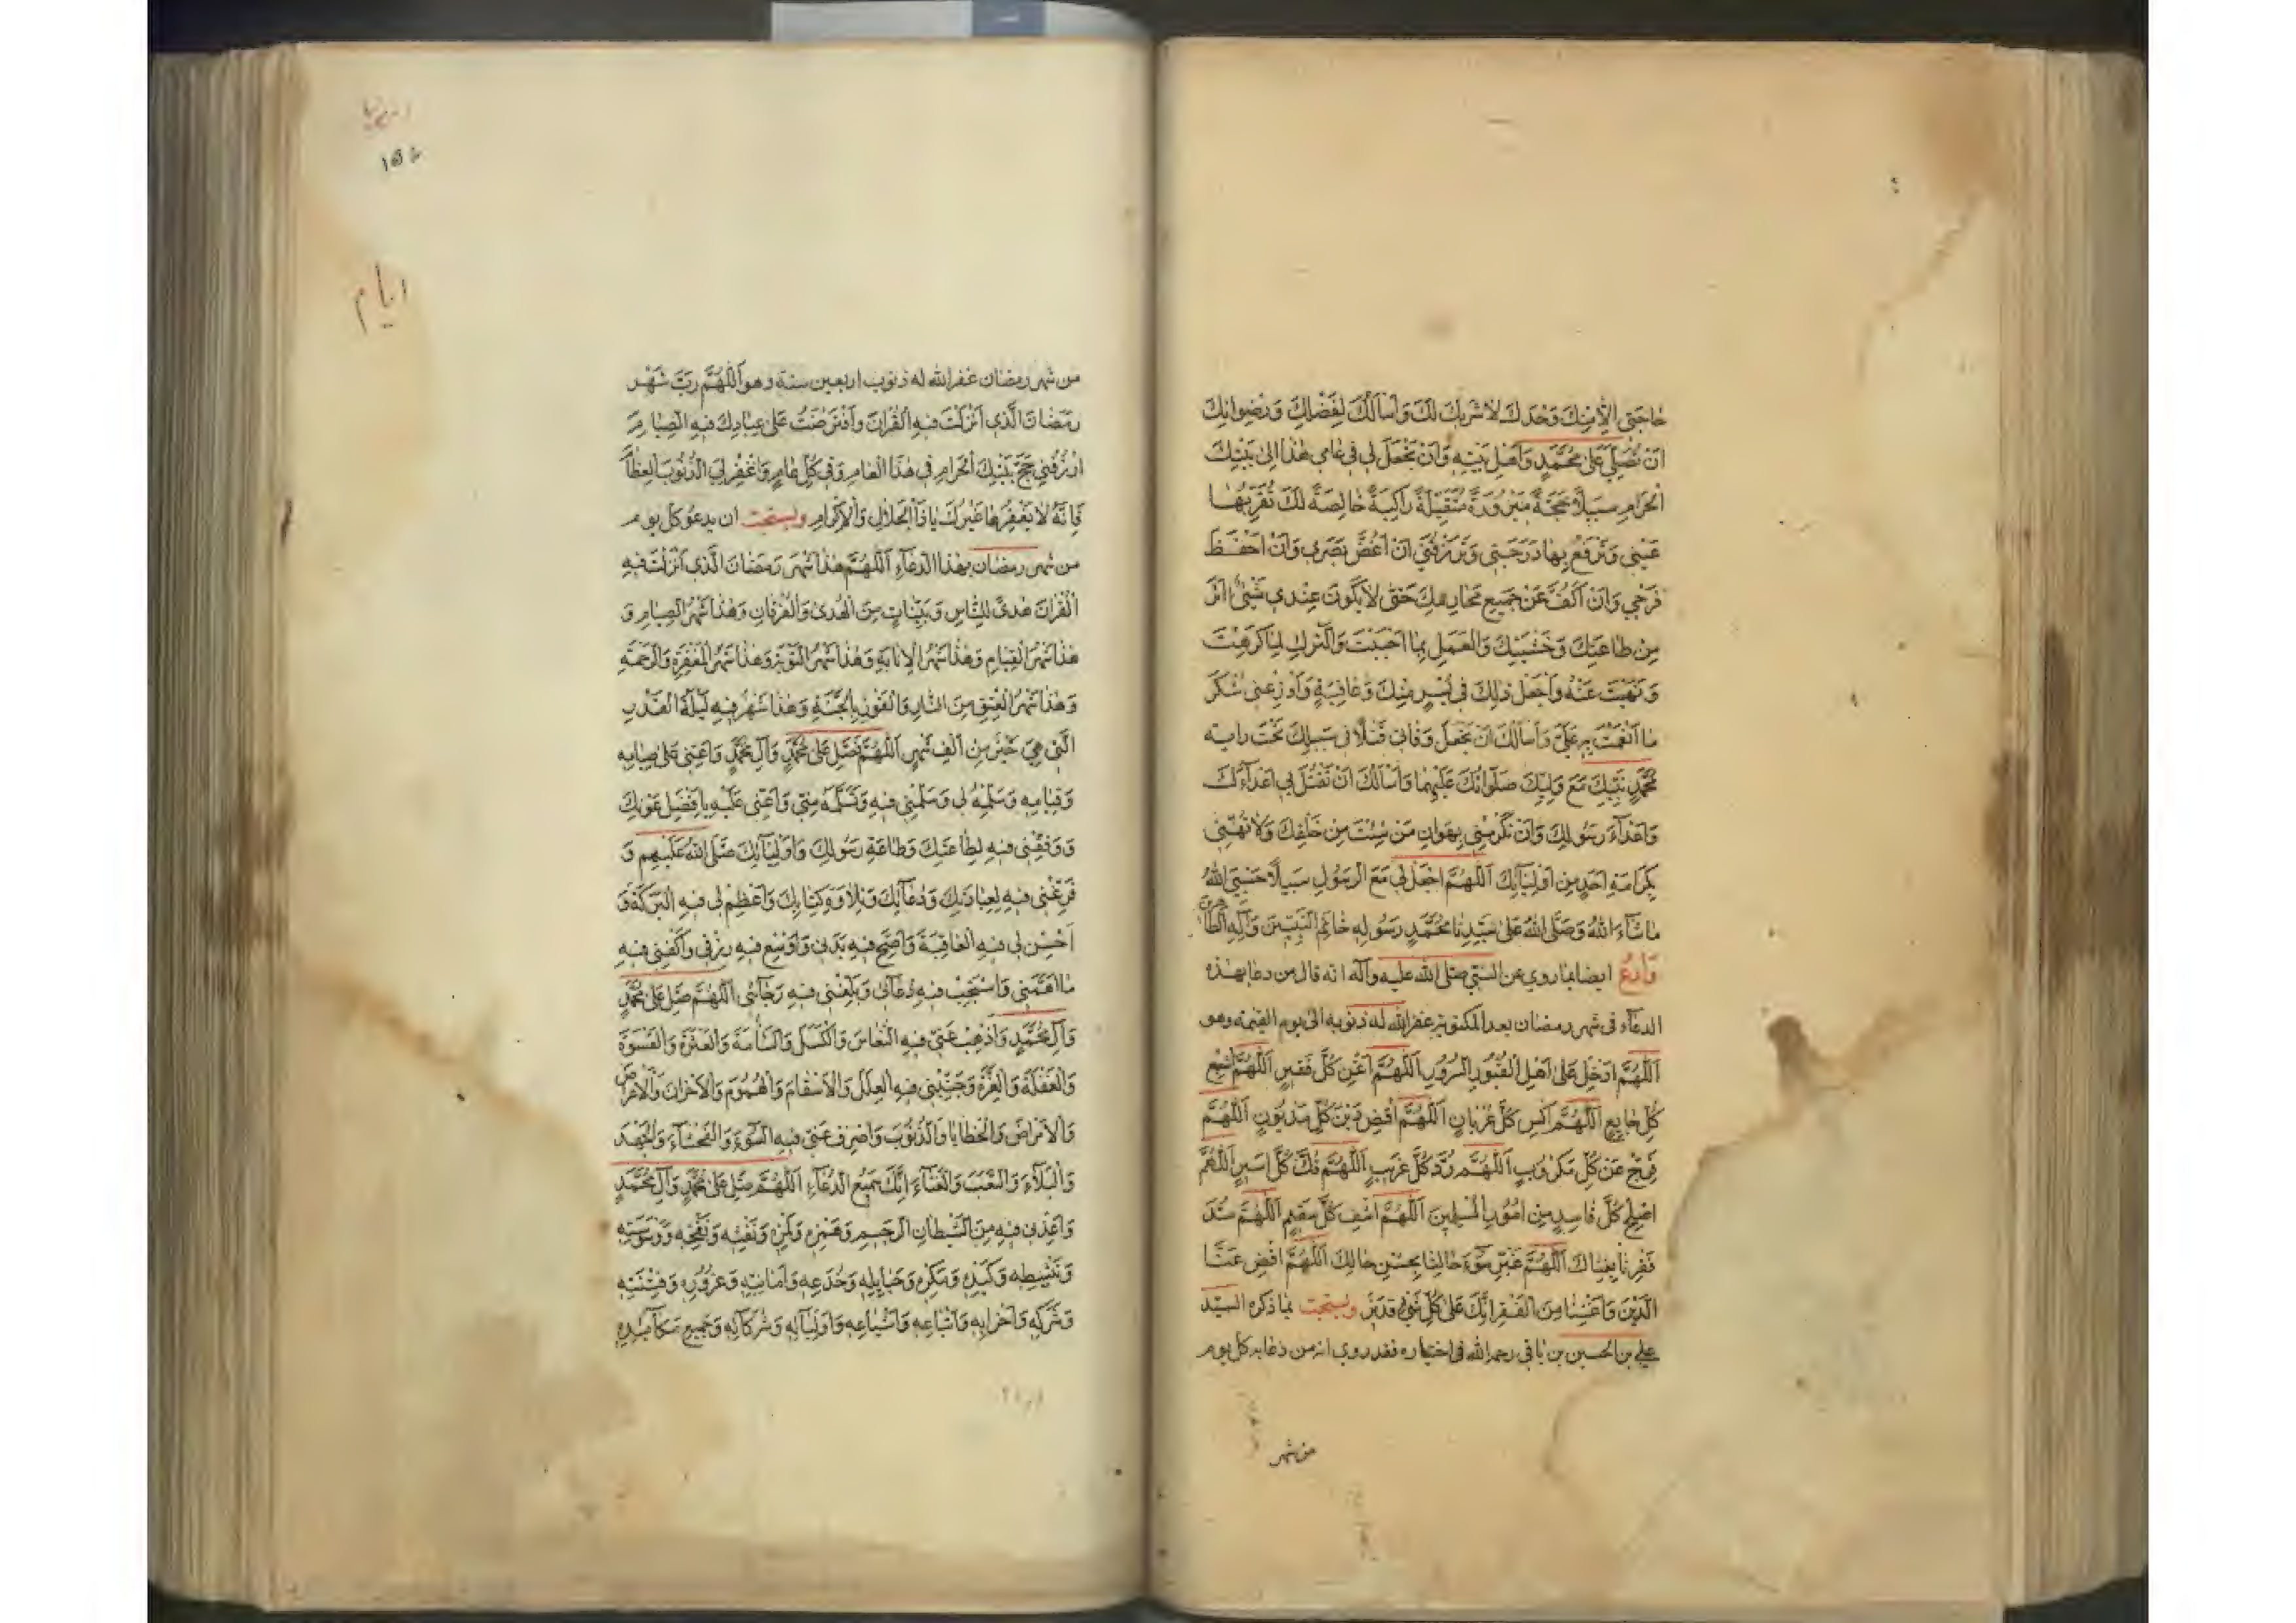 حَاجَتِي إِلَّا مِنْكَ وَحْدَكَ لَا شَرِيكَ لَكَ وَأَسْأَلُكَ بِفَضْلِكَ وَرِضْوَانِكَ
أَنْ تُصَلِّيَ عَلَى مُحَمَّدٍ وَأَهْلِ بَيْتِهِ وَأَنْ تَجْعَلَ لِي فِي عَامِي هٰذَا إِلَى بَيْتِكَ
الْحَرَامِ سَبِيلًا حَجَّةً مَبْرُورَةً مُتَقَبَّلَةً زَاكِيَةً خَالِصَةً لَكَ تُقِرُّ بِهَا
عَيْنِي وَتَرْفَعُ بِهَا دَرَجَتِي وَتَرْزُقَنِي أَنْ أَغُضَّ بَصَرِي وَأَنْ أَحْفَظَ
فَرْجِي وَأَنْ أَكُفَّ عَنْ جَمِيعِ مَحَارِمِكَ حَتَّى لَا يَكُونَ عِنْدِي شَيْءٌ آثَرَ
مِنْ طَاعَتِكَ وَخَشْيَتِكَ وَالْعَمَلِ بِمَا أَحْبَبْتَ وَالتَّرْكِ لِمَا كَرِهْتَ
وَنَهَيْتَ عَنْهُ وَاجْعَلْ ذٰلِكَ فِي يُسْرٍ مِنْكَ وَعَافِيَةٍ وَأَوْزِعْنِي شُكْرَ
مَا أَنْعَمْتَ بِهِ عَلَيَّ وَأَسْأَلُكَ أَنْ تَجْعَلَ وَفَاتِي قَتْلًا فِي سَبِيلِكَ تَحْتَ رَايَةِ
مُحَمَّدٍ نَبِيِّكَ مَعَ وَلِيِّكَ صَلَوَاتُكَ عَلَيْهِمَا وَأَسْأَلُكَ أَنْ تَقْتُلَ بِي أَعْدَاءَكَ
وَأَعْدَاءَ رَسُولِكَ وَأَنْ تُكْرِمَنِي بِهَوَانِ مَنْ شِئْتَ مِنْ خَلْقِكَ وَلَا تُهِنِّي
بِكَرَامَةِ أَحَدٍ مِنْ أَوْلِيَائِكَ اللّٰهُمَّ اجْعَلْ لِي مَعَ الرَّسُولِ سَبِيلًا حَسْبِيَ اللهُ
مَا شَاءَ اللهُ وَصَلَّى اللهُ عَلَى سَيِّدِنَا مُحَمَّدٍ رَسُولِهِ خَاتَمِ النَّبِيِّينَ وَآلِهِ الطَّاهِرِينَ
وَادْعُ ايضا بما روي عن النبي صلى الله عليه وآله انه قال من دعا بهذا
الدعاء في شهر رمضان بعد المكتوبة غفر الله له ذنوبه الى يوم القيمة وهو
اللّٰهُمَّ أَدْخِلْ عَلَى أَهْلِ الْقُبُورِ السُّرُورَ اللّٰهُمَّ أَغْنِ كُلَّ فَقِيرٍ اللّٰهُمَّ أَشْبِعْ
كُلَّ جَائِعٍ اللّٰهُمَّ اكْسُ كُلَّ عُرْيَانٍ اللّٰهُمَّ اقْضِ دَيْنَ كُلِّ مَدْيُونٍ اللّٰهُمَّ
فَرِّجْ عَنْ كُلِّ مَكْرُوبٍ اللّٰهُمَّ رُدَّ كُلَّ غَرِيبٍ اللّٰهُمَّ فُكَّ كُلَّ أَسِيرٍ اللّٰهُمَّ
أَصْلِحْ كُلَّ فَاسِدٍ مِنْ أُمُورِ الْمُسْلِمِينَ اللّٰهُمَّ اشْفِ كُلَّ سَقِيمٍ اللّٰهُمَّ سُدَّ
فَقْرَنَا بِغِنَاكَ اللّٰهُمَّ غَيِّرْ سُوءَ حَالِنَا بِحُسْنِ حَالِكَ اللّٰهُمَّ اقْضِ عَنَّا
الدَّيْنَ وَأَغْنِنَا مِنَ الْفَقْرِ إِنَّكَ عَلَى كُلِّ شَيْءٍ قَدِيرٌ ويستحب بما ذكره السيد
علي بن الحسين بن باقي رحمه الله في اختياره فقد روي انه من دعا به كل يوم
من شهر
ايام
من شهر رمضان غفر الله له ذنوب اربعين سنة وهو اللّٰهُمَّ رَبَّ شَهْرِ
رَمَضَانَ الَّذِي أَنْزَلْتَ فِيهِ الْقُرْآنَ وَافْتَرَضْتَ عَلَى عِبَادِكَ فِيهِ الصِّيَامَ
ارْزُقْنِي حَجَّ بَيْتِكَ الْحَرَامِ فِي هٰذَا الْعَامِ وَفِي كُلِّ عَامٍ وَاغْفِرْ لِيَ الذُّنُوبَ الْعِظَامَ
فَإِنَّهُ لَا يَغْفِرُهَا غَيْرُكَ يَا ذَا الْجَلَالِ وَالْإِكْرَامِ ويستحب ان يدعو كل يوم
من شهر رمضان بهذا الدعاء اللّٰهُمَّ هٰذَا شَهْرُ رَمَضَانَ الَّذِي أَنْزَلْتَ فِيهِ
الْقُرْآنَ هُدًى لِلنَّاسِ وَبَيِّنَاتٍ مِنَ الْهُدَى وَالْفُرْقَانِ وَهٰذَا شَهْرُ الصِّيَامِ وَ
هٰذَا شَهْرُ الْقِيَامِ وَهٰذَا شَهْرُ الْإِنَابَةِ وَهٰذَا شَهْرُ التَّوْبَةِ وَهٰذَا شَهْرُ الْمَغْفِرَةِ وَالرَّحْمَةِ
وَهٰذَا شَهْرُ الْعِتْقِ مِنَ النَّارِ وَالْفَوْزِ بِالْجَنَّةِ وَهٰذَا شَهْرٌ فِيهِ لَيْلَةُ الْقَدْرِ
الَّتِي هِيَ خَيْرٌ مِنْ أَلْفِ شَهْرٍ اللّٰهُمَّ فَصَلِّ عَلَى مُحَمَّدٍ وَآلِ مُحَمَّدٍ وَأَعِنِّي عَلَى صِيَامِهِ
وَقِيَامِهِ وَسَلِّمْهُ لِي وَسَلِّمْنِي فِيهِ وَتَسَلَّمْهُ مِنِّي وَأَعِنِّي عَلَيْهِ بِأَفْضَلِ عَوْنِكَ
وَوَفِّقْنِي فِيهِ لِطَاعَتِكَ وَطَاعَةِ رَسُولِكَ وَأَوْلِيَائِكَ صَلَّى اللهُ عَلَيْهِمْ وَ
فَرِّغْنِي فِيهِ لِعِبَادَتِكَ وَدُعَائِكَ وَتِلَاوَةِ كِتَابِكَ وَأَعْظِمْ لِي فِيهِ الْبَرَكَةَ وَ
أَحْسِنْ لِي فِيهِ الْعَافِيَةَ وَأَصِحَّ فِيهِ بَدَنِي وَأَوْسِعْ فِيهِ رِزْقِي وَاكْفِنِي فِيهِ
مَا أَهَمَّنِي وَاسْتَجِبْ فِيهِ دُعَائِي وَبَلِّغْنِي فِيهِ رَجَائِي اللّٰهُمَّ صَلِّ عَلَى مُحَمَّدٍ
وَآلِ مُحَمَّدٍ وَأَذْهِبْ عَنِّي فِيهِ النُّعَاسَ وَالْكَسَلَ وَالسَّأْمَةَ وَالْفَتْرَةَ وَالْقَسْوَةَ
وَالْغَفْلَةَ وَالْغِرَّةَ وَجَنِّبْنِي فِيهِ الْعِلَلَ وَالْأَسْقَامَ وَالْهُمُومَ وَالْأَحْزَانَ وَالْأَعْرَاضَ
وَالْأَمْرَاضَ وَالْخَطَايَا وَالذُّنُوبَ وَاصْرِفْ عَنِّي فِيهِ السُّوءَ وَالْفَحْشَاءَ وَالْجَهْدَ
وَالْبَلَاءَ وَالتَّعَبَ وَالْعَنَاءَ إِنَّكَ سَمِيعُ الدُّعَاءِ اللّٰهُمَّ صَلِّ عَلَى مُحَمَّدٍ وَآلِ مُحَمَّدٍ
وَأَعِذْنِي فِيهِ مِنَ الشَّيْطَانِ الرَّجِيمِ وَهَمْزِهِ وَلَمْزِهِ وَنَفْثِهِ وَنَفْخِهِ وَوَسْوَسَتِهِ
وَتَثْبِيطِهِ وَكَيْدِهِ وَمَكْرِهِ وَحَبَائِلِهِ وَخُدَعِهِ وَأَمَانِيِّهِ وَغُرُورِهِ وَفِتْنَتِهِ
وَشَرَكِهِ وَأَحْزَابِهِ وَأَتْبَاعِهِ وَأَشْيَاعِهِ وَأَوْلِيَائِهِ وَشُرَكَائِهِ وَجَمِيعِ مَكَائِدِهِ